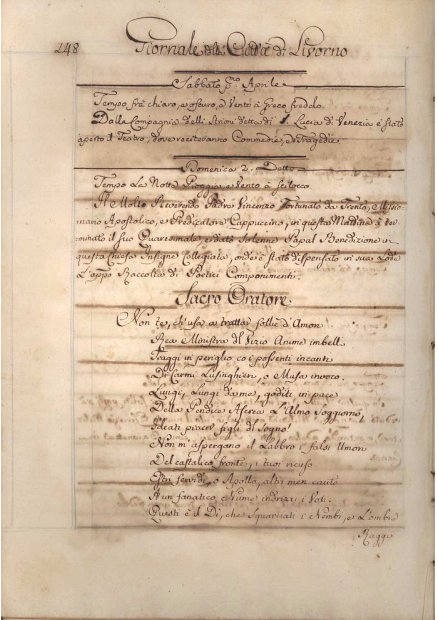 248
Giornale della Città di Livorno
Sabbato P.mo Aprile
Tempo frà chiaro, e oscuro, e Vento à Greco freddo
Dalla Compagnia delli Strioni detta di S. Lucia di Venezia è stato
aperto il Teatro, dove recitevanno Commedie, e Tragedie
Domenica 2. Detto
Tempo La Notte Pioggia, e Vento à scilocco
Il Molto Reverendo Padre Vincenzo Fortunato da Trento, Missio
nario Apostolico, e Predicatore Cappuccino, in questa Mattina à ter
minato il suo Quaresimale, e dato Solenne Papal Benedizione in
questa Chiesa Insigne Collegiata, onde è stato dispensato in sua Lode
L'appo Raccolta di Poetici Componimenti.
Sacro Oratore.
Non te, ch'usa a trattar follie d'Amor
Rea Ministra del Vizio Anime imbell
Traggi in periglio co' i possenti incanti
De' Carmi Lusinghieri, o Musa invoco.
Lungi, Lungi da me, goditi in pace
Della Pendice Ascrea L'Almo Soggiorno,
Ideati piacer figli di Sogno!
Non m'aspergano il Labbro i falsi Umori
Del castalio fronte, i tuoi ricuso
Estri fervidi, o Apollo, altri men cauto
A un fanatico Nume indrizzi i Voti.
Questi è il Dì, che squarciati i Nembi, e L'ombre
Raggi